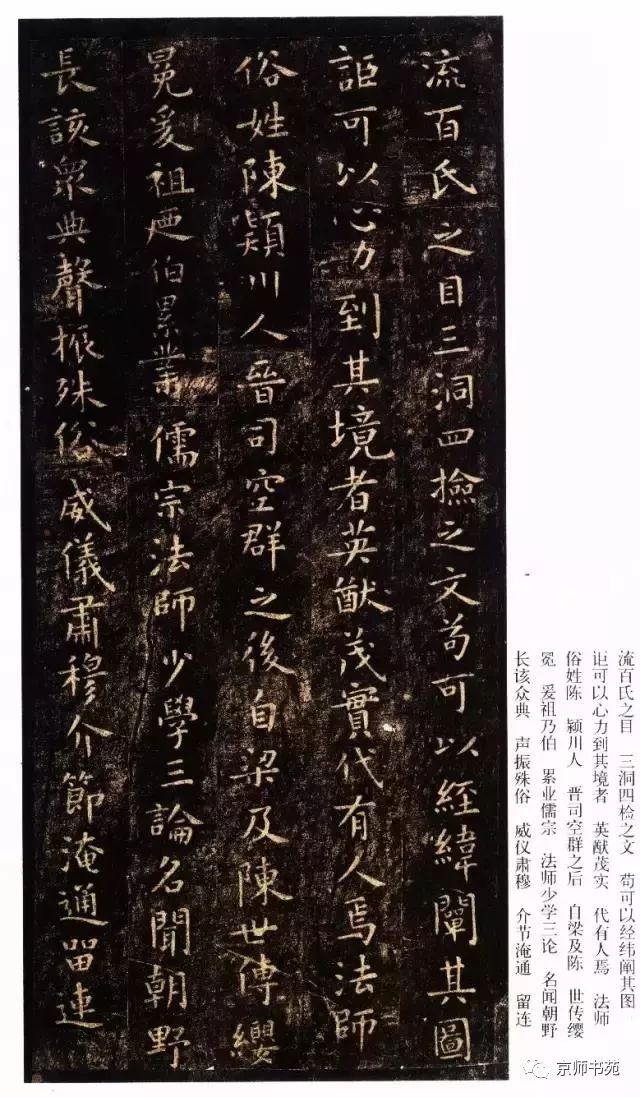 流百氏之目三洞四撿之文苟可以經緯闡其圖
詎可以心力到其境者英猷茂實代有人焉法師
俗姓陳潁川人晉司空群之後自梁及陳世傳纓
冕爰祖迺伯累業儒宗法師少學三論名聞朝野
長該衆典聲振殊俗威儀肅穆介節淹通留連
流百氏之目 三洞四检之文 苟可以经纬阐其图
讵可以心力到其境者 英猷茂实 代有人焉 法师
俗姓陈 颍川人 晋司空群之后 自梁及陈 世传缨
冕 爰祖乃伯 累业儒宗 法师少学三论 名闻朝野
长该众典 声振殊俗 威仪肃穆 介节淹通 留连
京师书苑